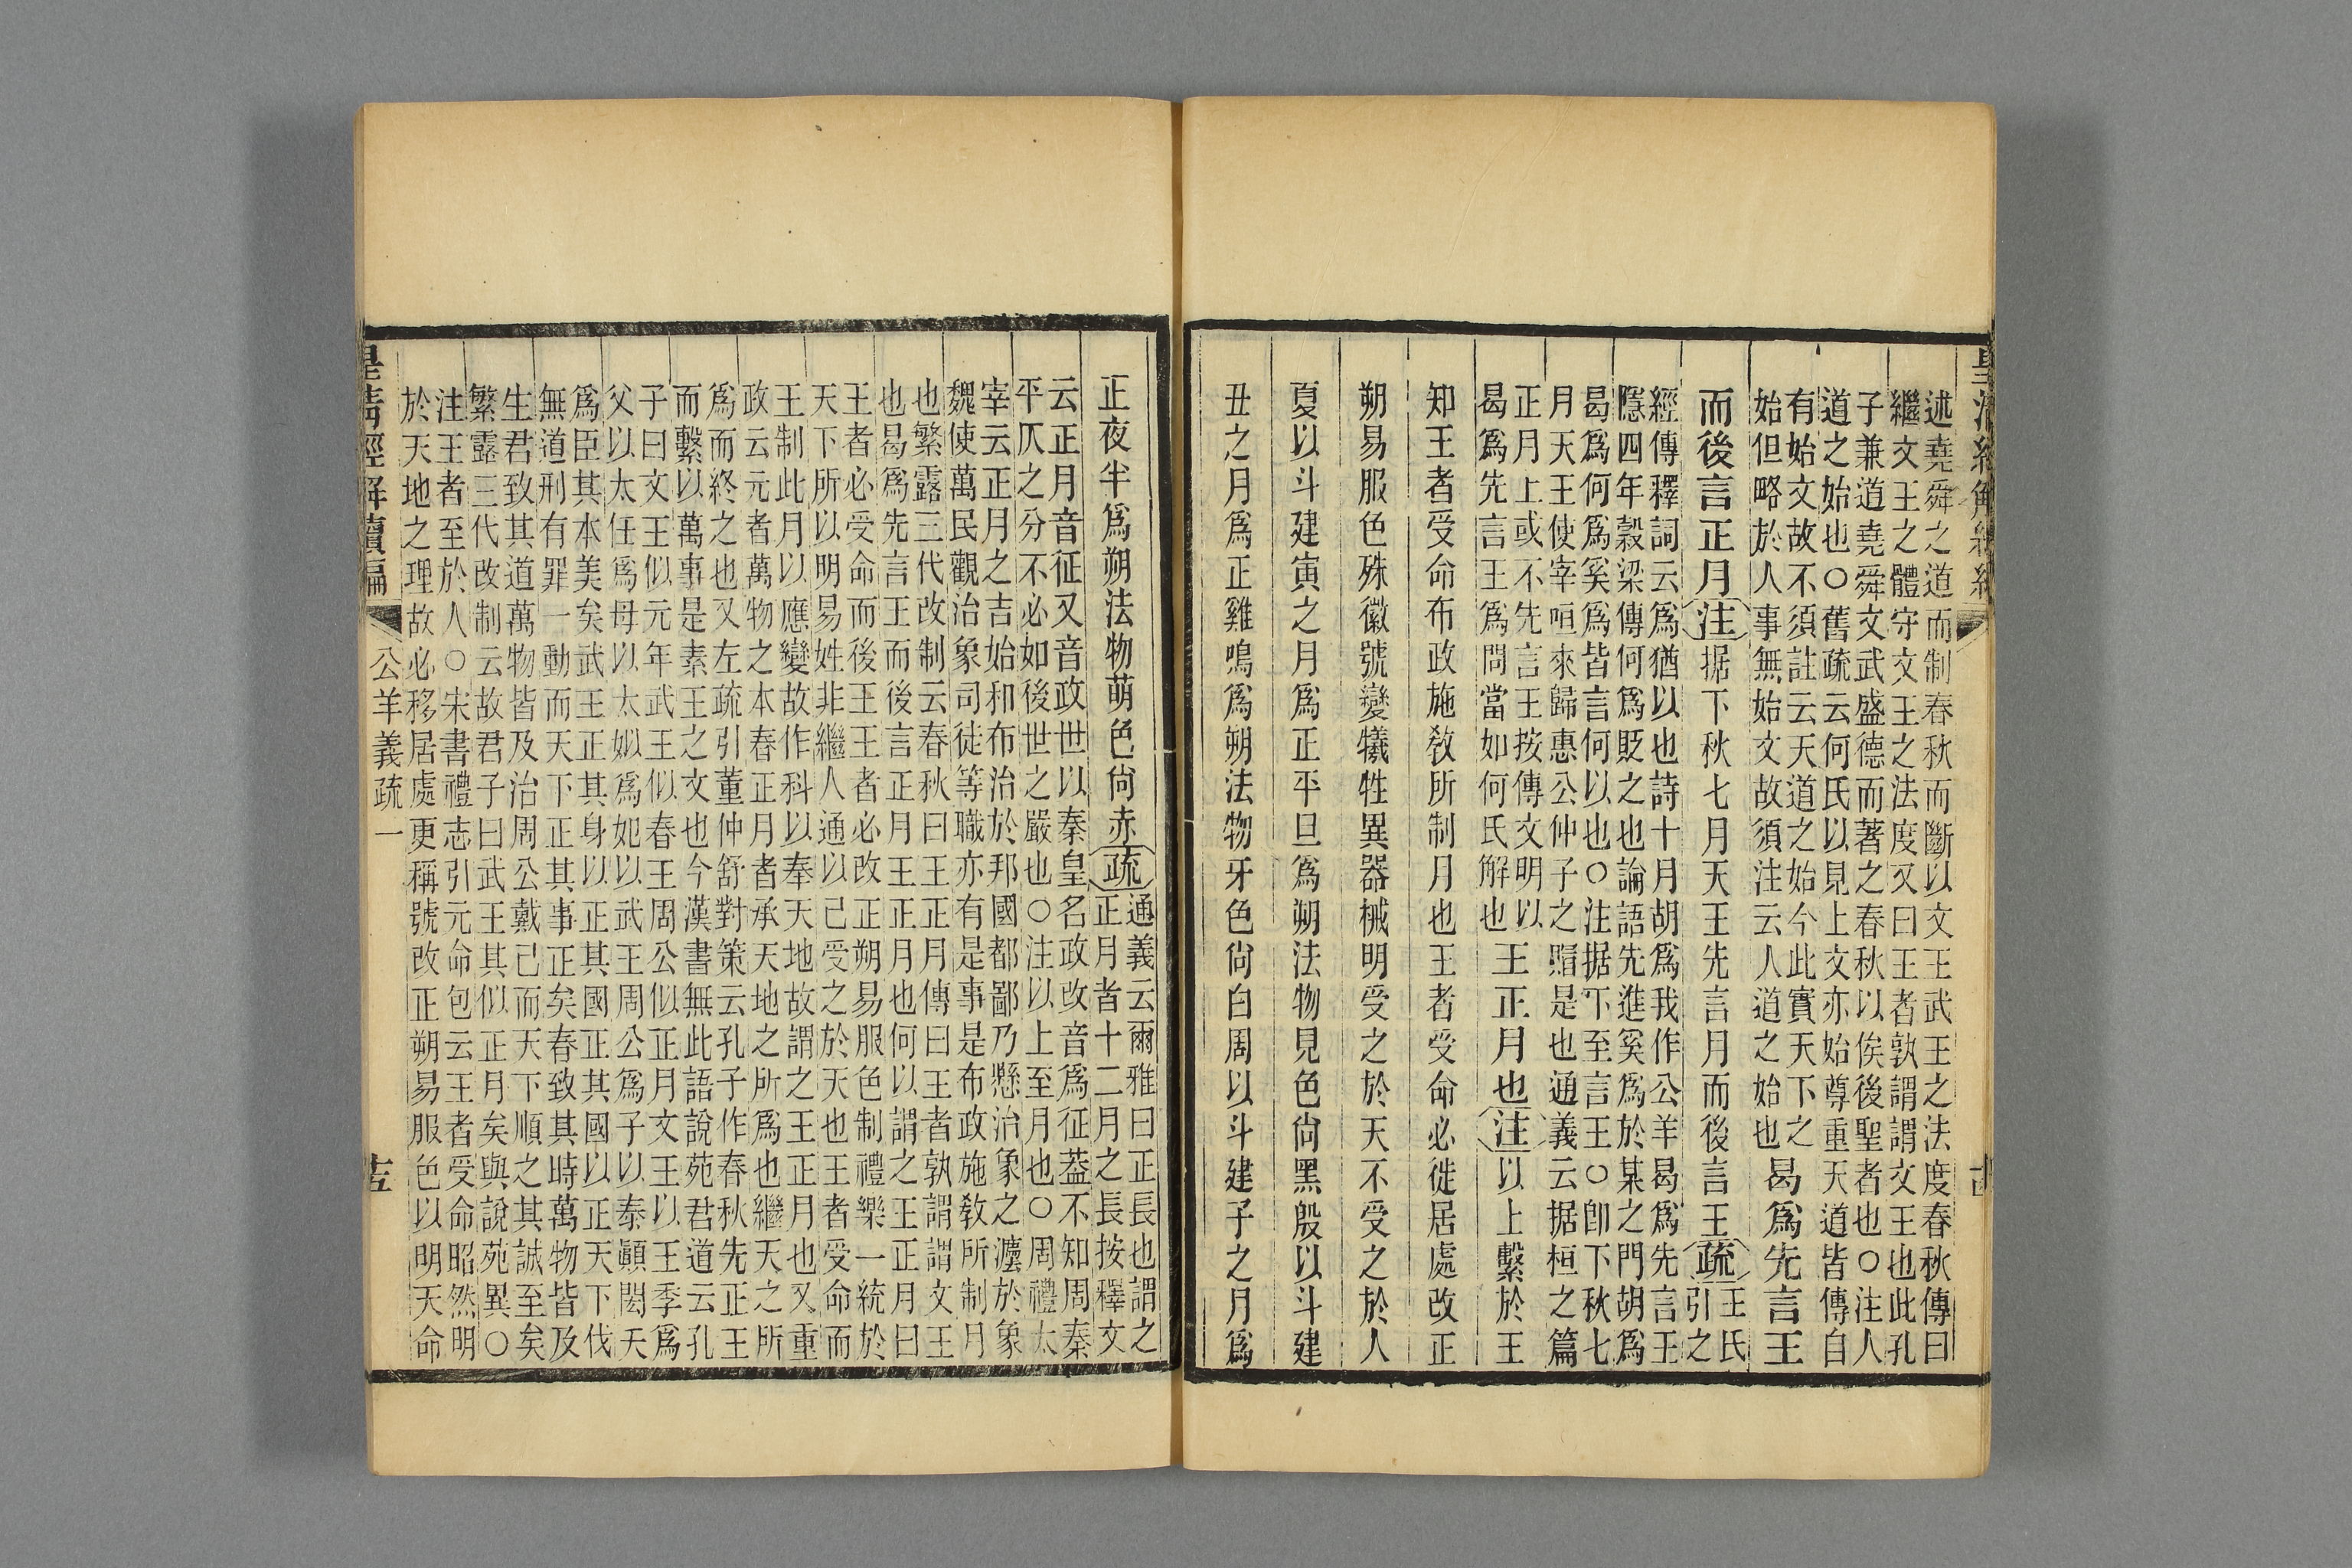 述堯舜之道而制春秋而斷以文王武王之法度春秋傳曰
繼文王之體守文王之法度又曰王者孰謂謂文王也此孔
子兼道堯舜文武盛德而著之春秋以俟後聖者也○注人
道之始也○舊疏云何氏以見上文亦始尊重天道皆傳自
有始文故不須註云天道之始今此實天下之
始但略於人事無始文故須注云人道之始也
曷爲先言王
而後言正月注据下秋七月天王先言月而後言王疏王氏
引之
經傳釋詞云爲猶以也詩十月胡爲我作公羊曷爲先言王
隱四年穀梁傳何爲貶之也論語先進奚爲於某之門胡爲
曷爲何爲奚爲皆言何以也○注据下至言王○卽下秋七
月天王使宰咺來歸惠公仲子之賵是也通義云据桓之篇
正月上或不先言王按傳文明以
曷爲先言王爲問當如何氏解也
王正月也注以上繫於王
知王者受命布政施敎所制月也王者受命必徙居處改正
朔易服色殊徽號變犧牲異器械明受之於天不受之於人
夏以斗建寅之月爲正平旦爲朔法物見色尙黑殷以斗建
丑之月爲正雞鳴爲朔法物牙色尙白周以斗建子之月爲
正夜半爲朔法物萌色尙赤疏通義云爾雅曰正長也謂之
正月者十二月之長按釋文
云正月音征又音政世以秦皇名政改音爲征葢不知周秦
平仄之分不必如後世之嚴也○注以上至月也○周禮太
宰云正月之吉始和布治於邦國都鄙乃懸治象之灋於象
魏使萬民觀治象司徒等職亦有是事是布政施敎所制月
也繁露三代改制云春秋曰王正月傳曰王者孰謂謂文王
也曷爲先言王而後言正月王正月也何以謂之王正月曰
王者必受命而後王王者必改正朔易服色制禮樂一統於
天下所以明易姓非繼人通以己受之於天也王者受命而
王制此月以應變故作科以奉天地故謂之王正月也又重
政云元者萬物之本春正月者承天地之所爲也繼天之所
爲而終之也又左疏引董仲舒對策云孔子作春秋先正王
而繫以萬事是素王之文也今漢書無此語說苑君道云孔
子曰文王似元年武王似春王周公似正月文王以王季爲
父以太任爲母以太姒爲妃以武王周公爲子以泰顚閎天
爲臣其本美矣武王正其身以正其國正其國以正天下伐
無道刑有罪一動而天下正其事正矣春致其時萬物皆及
生君致其道萬物皆及治周公戴己而天下順之其誠至矣
繁露三代改制云故君子曰武王其似正月矣與說苑異○
注王者至於人○宋書禮志引元命包云王者受命昭然明
於天地之理故必移居處更稱號改正朔易服色以明天命
皇淸經解續編 公羊義疏一 十五